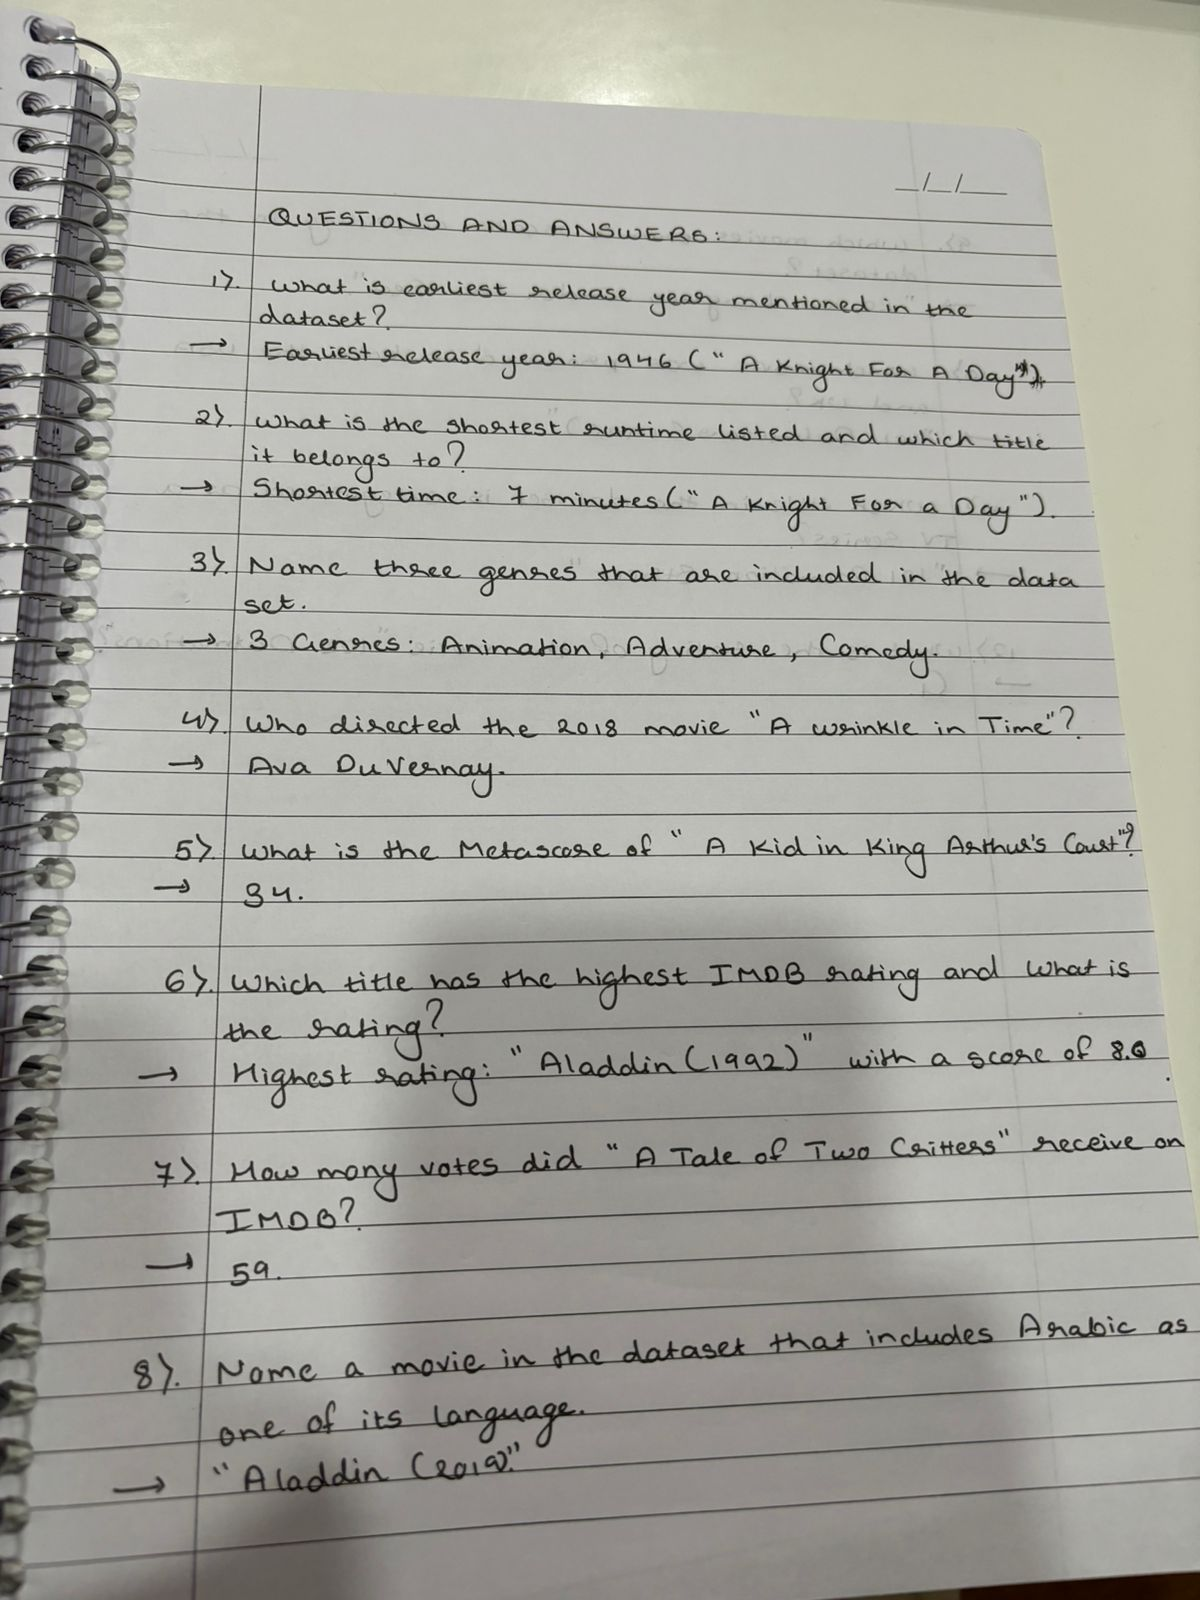 _/_/__
QUESTIONS AND ANSWERS:
1). What is earliest release year mentioned in the
dataset?
→ Earliest release year: 1946 ("A Knight For A Day").
2). What is the shortest runtime listed and which title
it belongs to?
→ Shortest time: 7 minutes ("A Knight For a Day").
3). Name three genres that are included in the data
set.
→ 3 Genres: Animation, Adventure, Comedy.
4). Who directed the 2018 movie "A wrinkle in Time"?
→ Ava DuVernay.
5). What is the Metascore of "A Kid in King Arthur's Court"?
→ 34.
6). Which title has the highest IMDB rating and what is
the rating?
→ Highest rating: "Aladdin (1992)" with a score of 8.0.
7). How many votes did "A Tale of Two Critters" receive on
IMDB?
→ 59.
8). Name a movie in the dataset that includes Arabic as
one of its language.
→ "Aladdin (2019)."